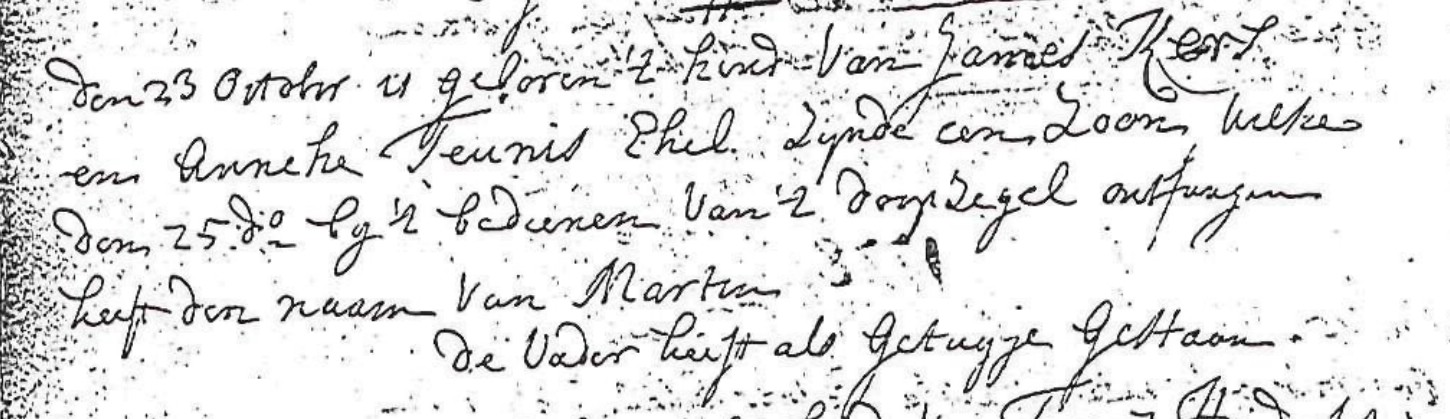 den 23 Octobr is geboren 't kind van James Kers.
en Anneke Teunis Ehel. Zynde een Zoon, welke
den 25 do by 't bedienen van 't doopzegel ontfangen
heeft den naam van Martin
de Vader heeft als Getuyge Gestaan.